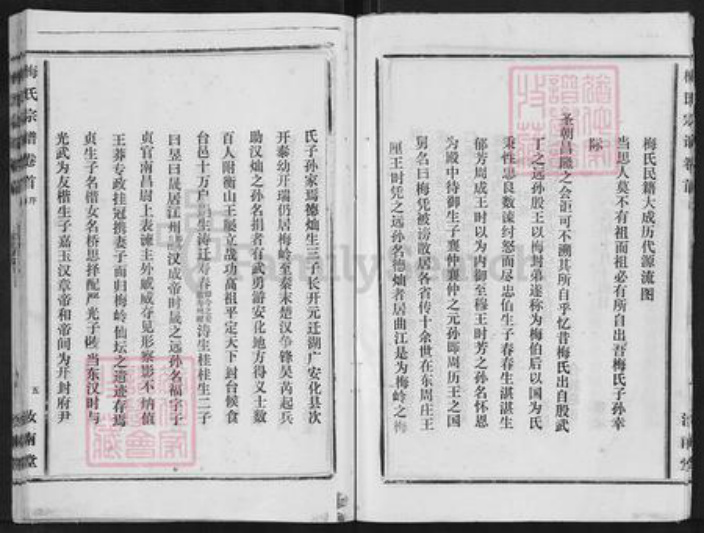 梅氏民籍大成历代源流图
当思人莫不有祖而祖必有所自出吾梅氏子孙幸
际
圣朝昌殿之会讵可不溯其所自乎忆昔梅氏出自殷武
丁之远孙殷王以梅封弟遂称为梅伯后以国为氏
秉性忠良数谏纣怒而尽忠伯生子春春生湛湛生
郁芳周成王时以为内御至穆王时芳之孙名怀恩
为殿中待御生子襄仲襄仲之元孙即周历王之国
舅名曰梅凭被谤散居各省传十余世在东周庄王
厘王时凭之远孙名德灿者居曲江是为梅岭之梅
梅氏宗谱卷首
氏子孙家焉德灿生三子长开元迁湖广安化县次
开泰幼开瑞仍居梅岭至秦末楚汉争锋吴芮起兵
助汉灿之孙名鋗者有武勇游安化地方得义士数
百人附衡山王屡立战功高祖平定天下封台候食
台邑十万户鋗生涛迁寿春涛生桂桂生二子
曰昱曰晟居江州汉成帝时晟之远孙名福字子
贞官南昌尉上表谏主外戚咸夺见形察影不纳值
王莽专政挂冠携妻子而归梅岭仙坛之遗迹存焉
贞生子名楷女名桥思择配严光子礅当东汉时与
光武为友楷生子嘉玉汉章帝和帝间为开封府尹
梅氏宗谱卷首 序
五 汝南堂
FamilySearch